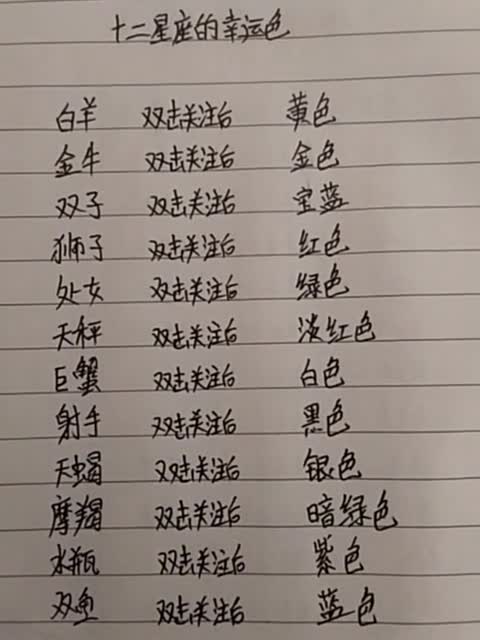 十二星座的幸运色
白羊 双击关注后 黄色
金牛 双击关注后 金色
双子 双击关注后 宝蓝
狮子 双击关注后 红色
处女 双击关注后 绿色
天秤 双击关注后 淡红色
巨蟹 双击关注后 白色
射手 双击关注后 黑色
天蝎 双击关注后 银色
摩羯 双击关注后 暗绿色
水瓶 双击关注后 紫色
双鱼 双击关注后 蓝色